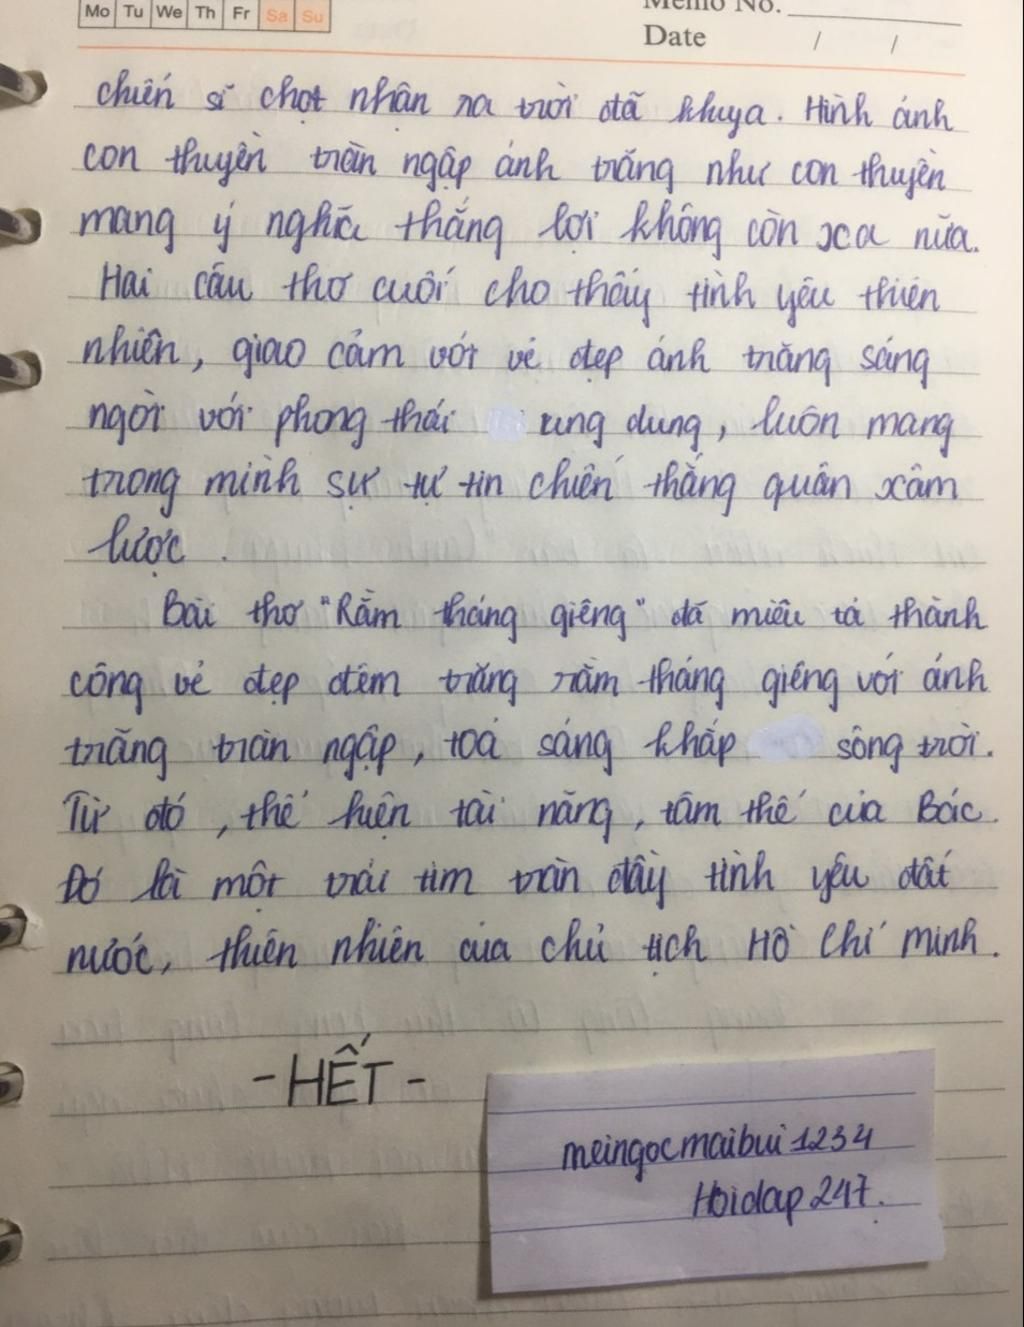 Mo Tu We Th Fr Sa Su
Memo No.
Date / /
chiến sĩ chợt nhận ra trời đã khuya. Hình ảnh
con thuyền tràn ngập ánh trăng như con thuyền
mang ý nghĩa thắng lợi không còn xa nữa.
Hai câu thơ cuối cho thấy tình yêu thiên
nhiên, giao cảm với vẻ đẹp ánh trăng sáng
ngời với phong thái ung dung, luôn mang
trong mình sự tự tin chiến thắng quân xâm
lược.
Bài thơ "Rằm tháng giêng" đã miêu tả thành
công vẻ đẹp đêm trăng rằm tháng giêng với ánh
trăng tràn ngập, toả sáng khắp sông trời.
Từ đó, thể hiện tài năng, tâm thế của Bác.
Đó là một trái tim tràn đầy tình yêu đất
nước, thiên nhiên của chủ tịch Hồ Chí Minh.
- HẾT -
meingocmaibui1234
Hoidap247.